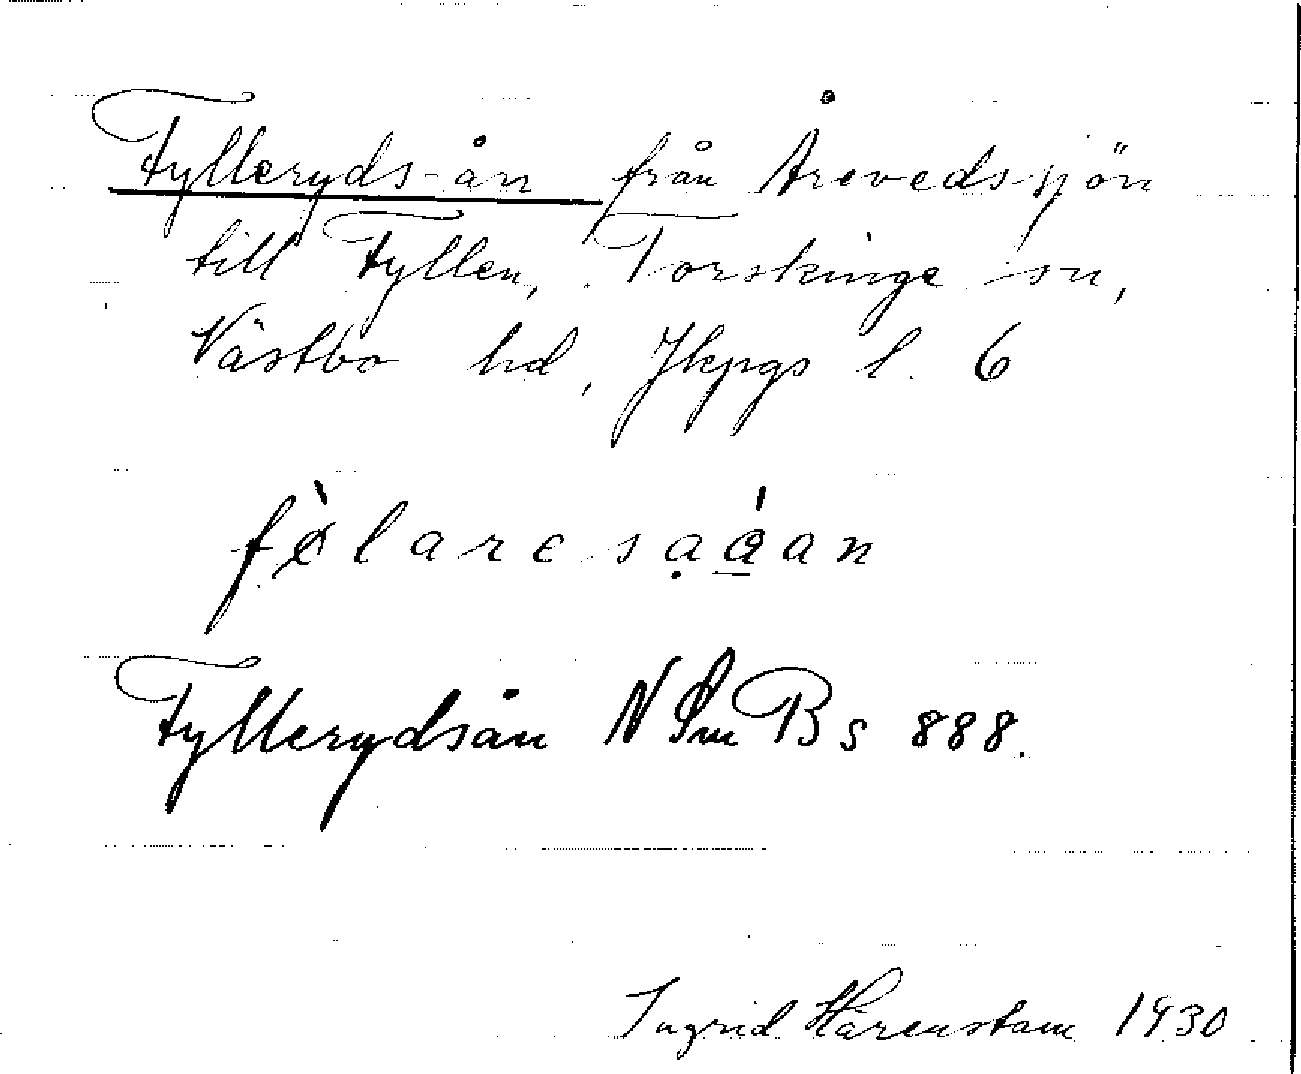 Fylleryds-ån från Årevedssjön
till Fyllen, Torskinge sn,
Västbo hd, Jkpgs l. 6
fø̀laresạá̲an
Fyllerydsån N Sm B s 888.
Ingrid Härenstam 1930